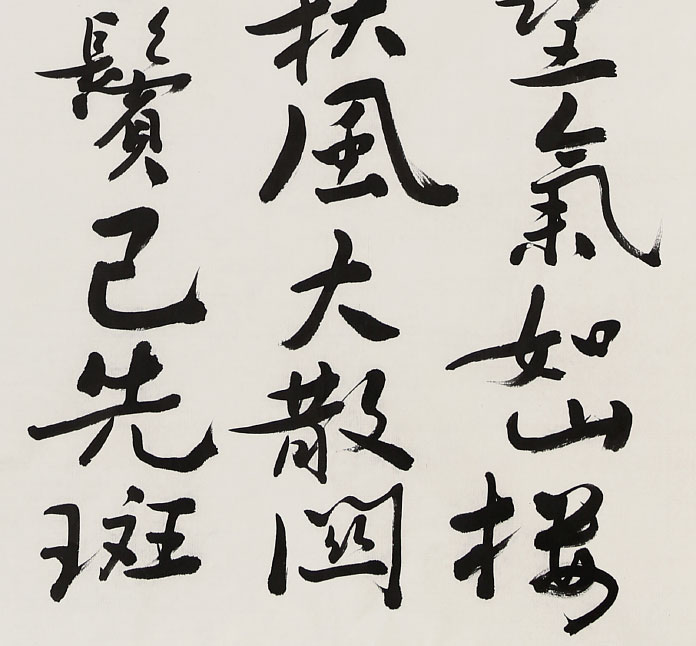 望氣如山樓
秋風大散關
鬢已先斑